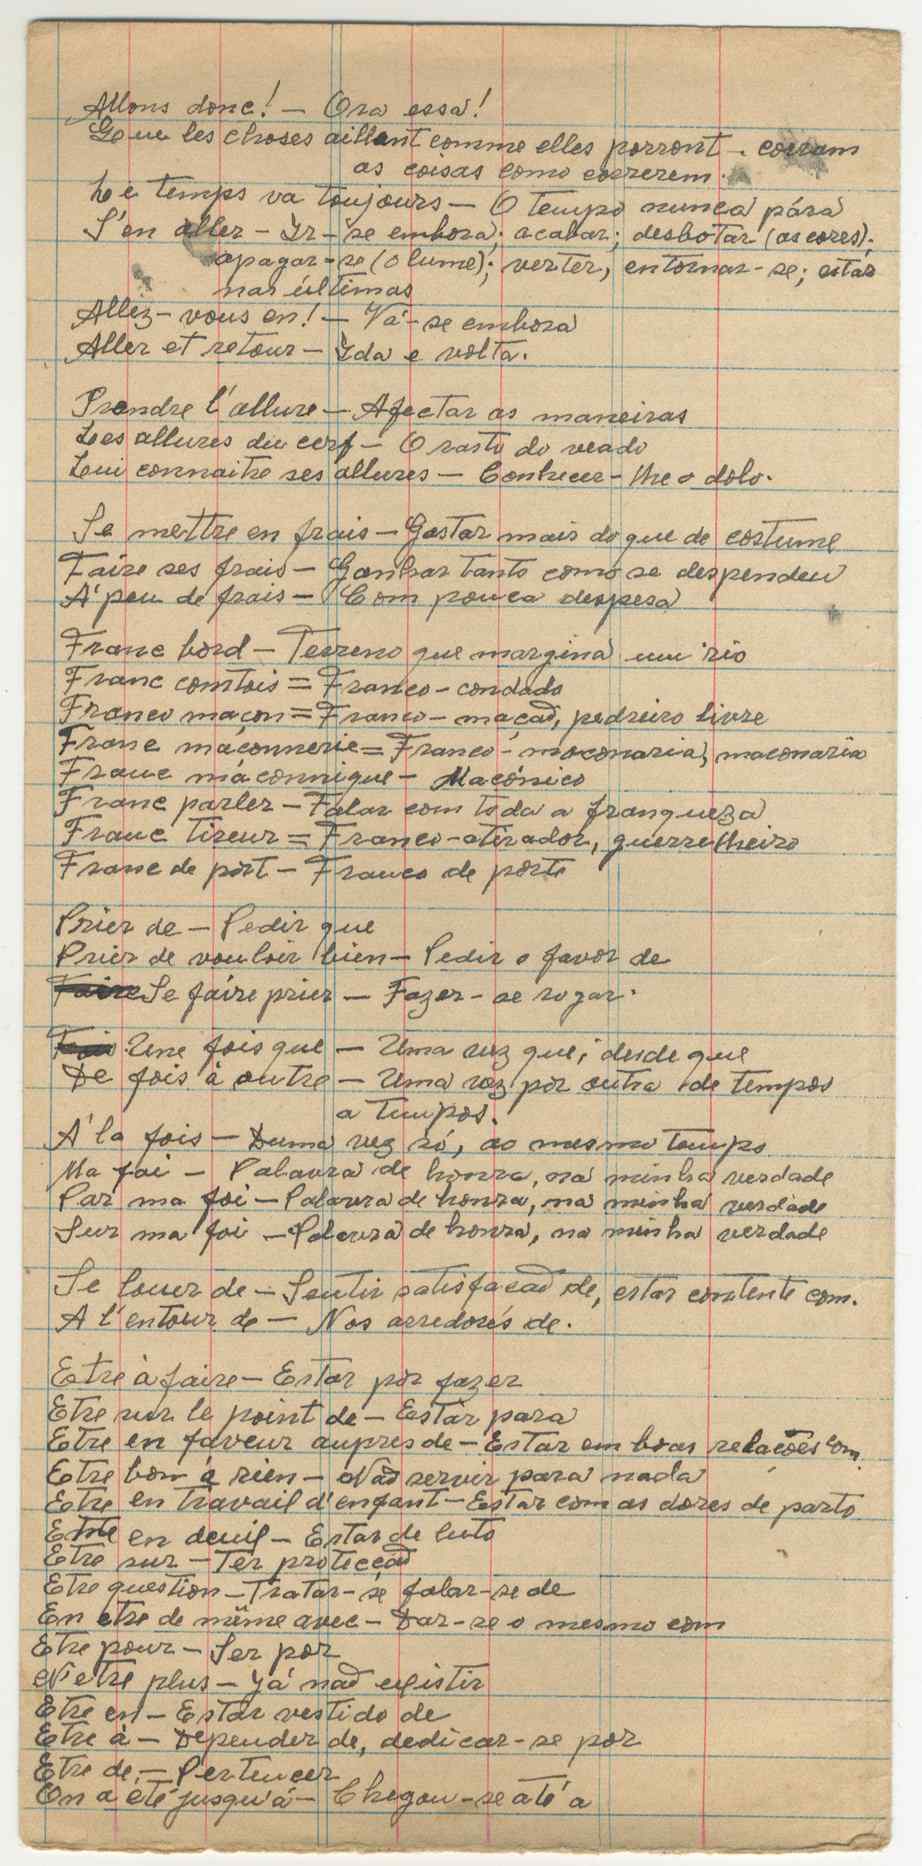 Allons donc! — Ora essa!
Que les choses aillent comme elles porront - corram
as coisas como correrem.
Le temps va toujours — O tempo nunca pára
S'en aller — Ir-se embora; acabar; desbotar (as cores);
apagar-se (o lume); verter, entornar-se; estar
nas últimas
Allez-vous en! — Vá-se embora
Aller et retour — Ida e volta.
Prendre l'allure — Afectar as maneiras
Les allures du cerf — O rasto do veado
Lui connaitre ses allures — Conhecer-lhe o dolo.
Se mettre en frais — Gastar mais do que de costume
Faire ses frais — Ganhar tanto como se despendeu
A' peu de frais — Com pouca despesa
Franc bord — Terreno que margina um rio
Franc comtois = Franco-condado
Franco maçon = Franco-maçaõ, pedreiro livre
Franc maçonnerie = Franco-maconaria, maconaria
Franc máconnique — Macónico
Franc parler — Falar com toda a franqueza
Franc tireur = Franco-atirador, guerrelheiro
Franc de port — Franco de porte
Prier de — Pedir que
Prier de vouloir bien — Pedir o favor de
Faire Se faire prier — Fazer-se rogar.
Fois Une fois que — Uma vez que; desde que
De fois à outre — Uma vez por outra de tempos
a tempos.
A' la fois — Duma vez só, ao mesmo tempo
Ma foi — Palavra de honra, na minha verdade
Par ma foi — Palavra de honra, na minha verdade
Sur ma foi — Palavra de honra, na minha verdade
Se louer de — Sentir satisfacaõ de, estar contente com.
A l'entour de — Nos arredores de.
Etre à faire — Estar por fazer
Etre sur le point de — Estar para
Etre en faveur aupres de — Estar em boas relações com
Etre bon à rien — Naõ servir para nada
Etre en travail d'enfant — Estar com as dores de parto
Etre en deuil — Estar de luto
Etre sur — Ter protecçaõ
Etre question — Tratar-se falar-se de
En etre de même avec — Dar-se o mesmo com
Etre pour — Ser por
N'etre plus — Já naõ existir
Etre en — Estar vestido de
Etre à — Depender de, dedicar-se por
Etre de — Pertencer
On a été jusqu'á — Chegou-se até a